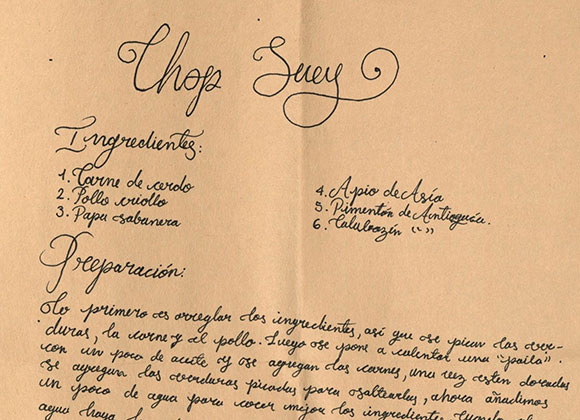 Chop Suey
Ingredientes:
1. Carne de cerdo
2. Pollo criollo
3. Papa sabanera
4. Apio de Asía
5. Pimentón de Antioquia.
6. Calabazín “”
Preparación:
Lo primero es arreglar los ingredientes, así que se pican las ver-
duras, la carne y el pollo. Luego se pone a calentar una "paila".
con un poco de aceite y se agregan las carnes, una vez estén doradas
se agregan las verduras picadas para saltearlas, ahora añadimos
un poco de agua para cocer mejor los ingredientes. Cuando el
agua haya